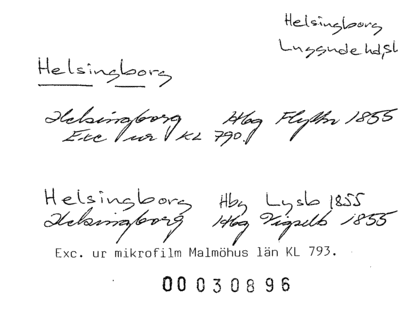 Helsingborg
Luggude hd, sl
Helsingborg
Helsingborg Hbg Flyttn 1855
Exc ur KL 790.
Helsingborg Hbg Lysb 1855
Helsingborg Hbg Vigselb 1855
Exc. ur mikrofilm Malmöhus län KL 793.
00030896